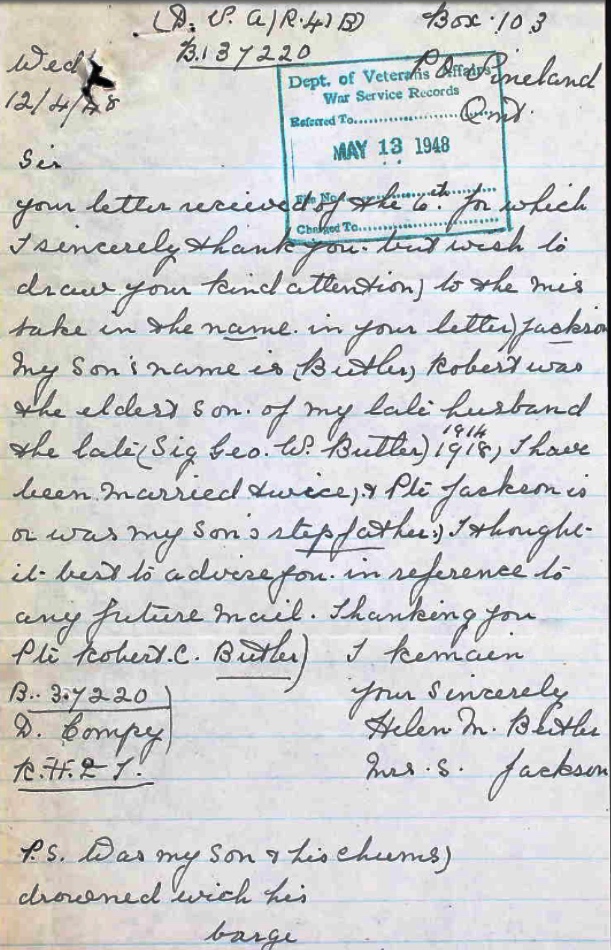 (D. V. A/R.4)B) Box. 103
B.137220
Wed
12/4/48
P.O. Vineland
Ont.
Dept. of Veterans Affairs
War Service Records
Referred To
MAY 13 1948
File No.
Charged To
Sir
your letter recieved of the 6th for which
I sincerely thank you. but wish to
draw your kind attention) to the mis
take in the name. in your letter) Jackson
My Son's name is (Butler) Robert was
the eldest Son. of my late husband
1914
the late (Sig Geo. W. Butler) 1918, I have
been married twice, & Pte Jackson is
or was my Son's stepfather, I thought
it best to advise you. in reference to
any future mail. Thanking you
Pte Robert. C. Butler) I Remain
B. 37220 your Sincerely
D. Compy Helen M. Butler
R.H.L I. Mrs. S. Jackson
P.S. Was my Son & his chums)
drowned wich his
barge